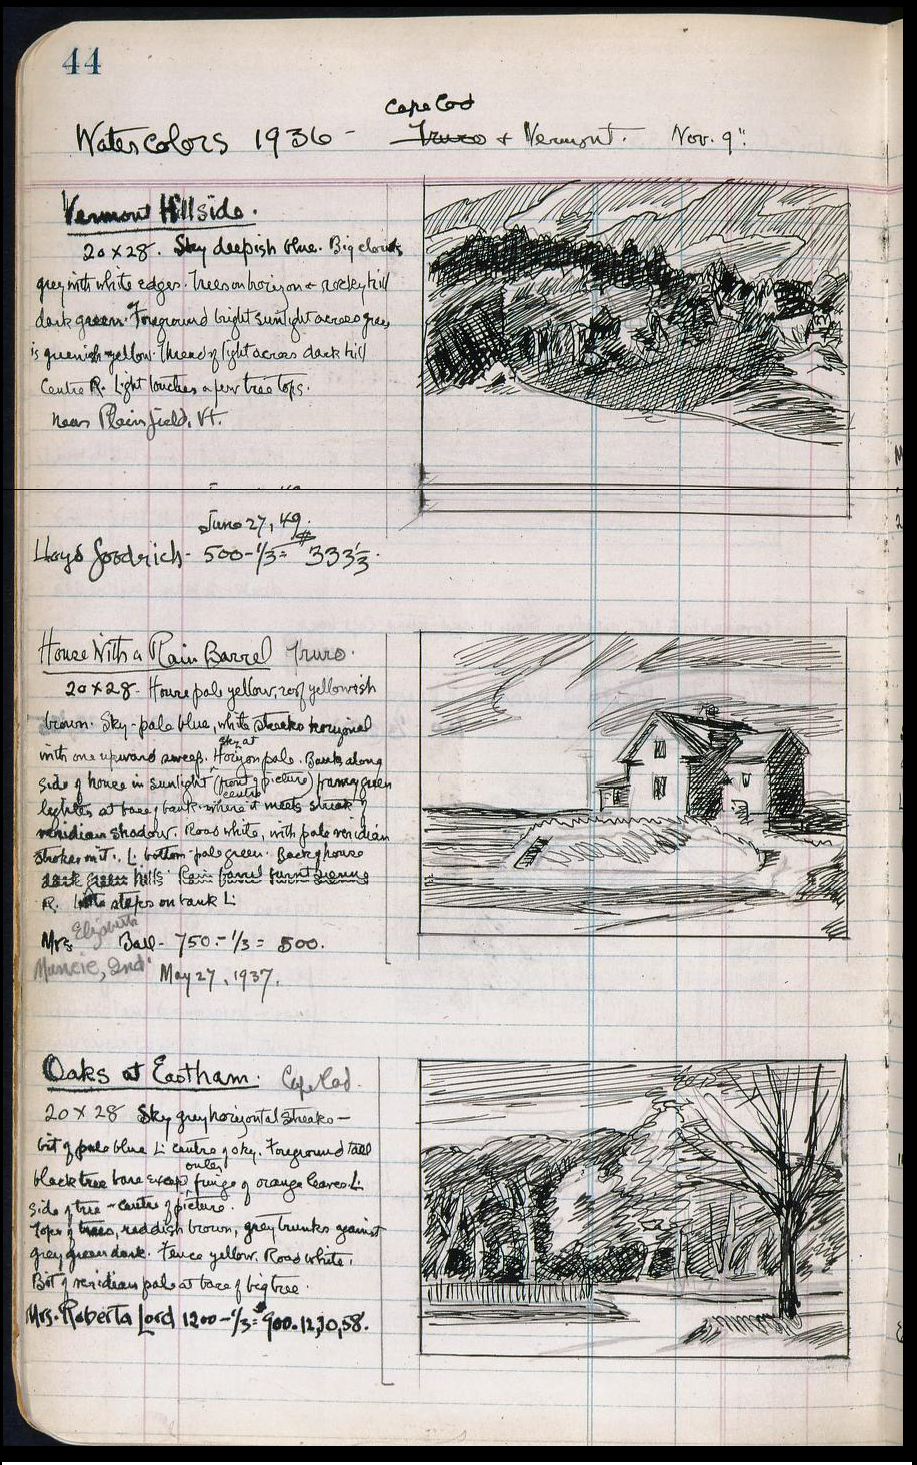 44
Cape Cod
Watercolors 1936 - Truro + Vermont. Nov. 9"
Vermont Hillside.
20 x 28. Sky deepish blue. Big clouds
grey with white edges. Trees on horizon + rocky hill
dark green. Foreground bright sunlight across grass
is greenish yellow. Thread of light across dark hill
Centre R. Light touches a few tree tops.
near Plainfield, Vt.
June 27, 49.
Lloyd Goodrich - 500 - 1/3 = $333 1/3
House With a Rain Barrel Truro.
20 x 28 - House pale yellow, roof yellowish
brown. Sky - pale blue, white streaks horizonal
with one upward sweep. Sky at Horizon pale. Bank along
side of house in sunlight (front of picture)
centre
lighter at base of bank where it meets streak of
viridian shadow. Road white, with pale viridian
strokes on it. L. bottom - pale green. Back of house
dark green hills. Rain barrel burnt sienna
R. little steps on bank L.
Mrs. Elizabeth Ball - 750. - 1/3 = 500.
Muncie, Ind. May 27, 1937.
Oaks at Eastham. Cape Cod.
20 x 28 Sky grey horizontal streaks -
bit of pale blue L. centre of sky. Foreground tall
black tree bare except outer fringe of orange leaves L.
side of tree - centre of picture.
Tops of trees, reddish brown, grey trunks against
grey green dark. Fence yellow. Road white.
Bit of viridian pale at base of big tree.
Mrs. Roberta Lord 1200 - 1/3 = $900. 12,30,58.